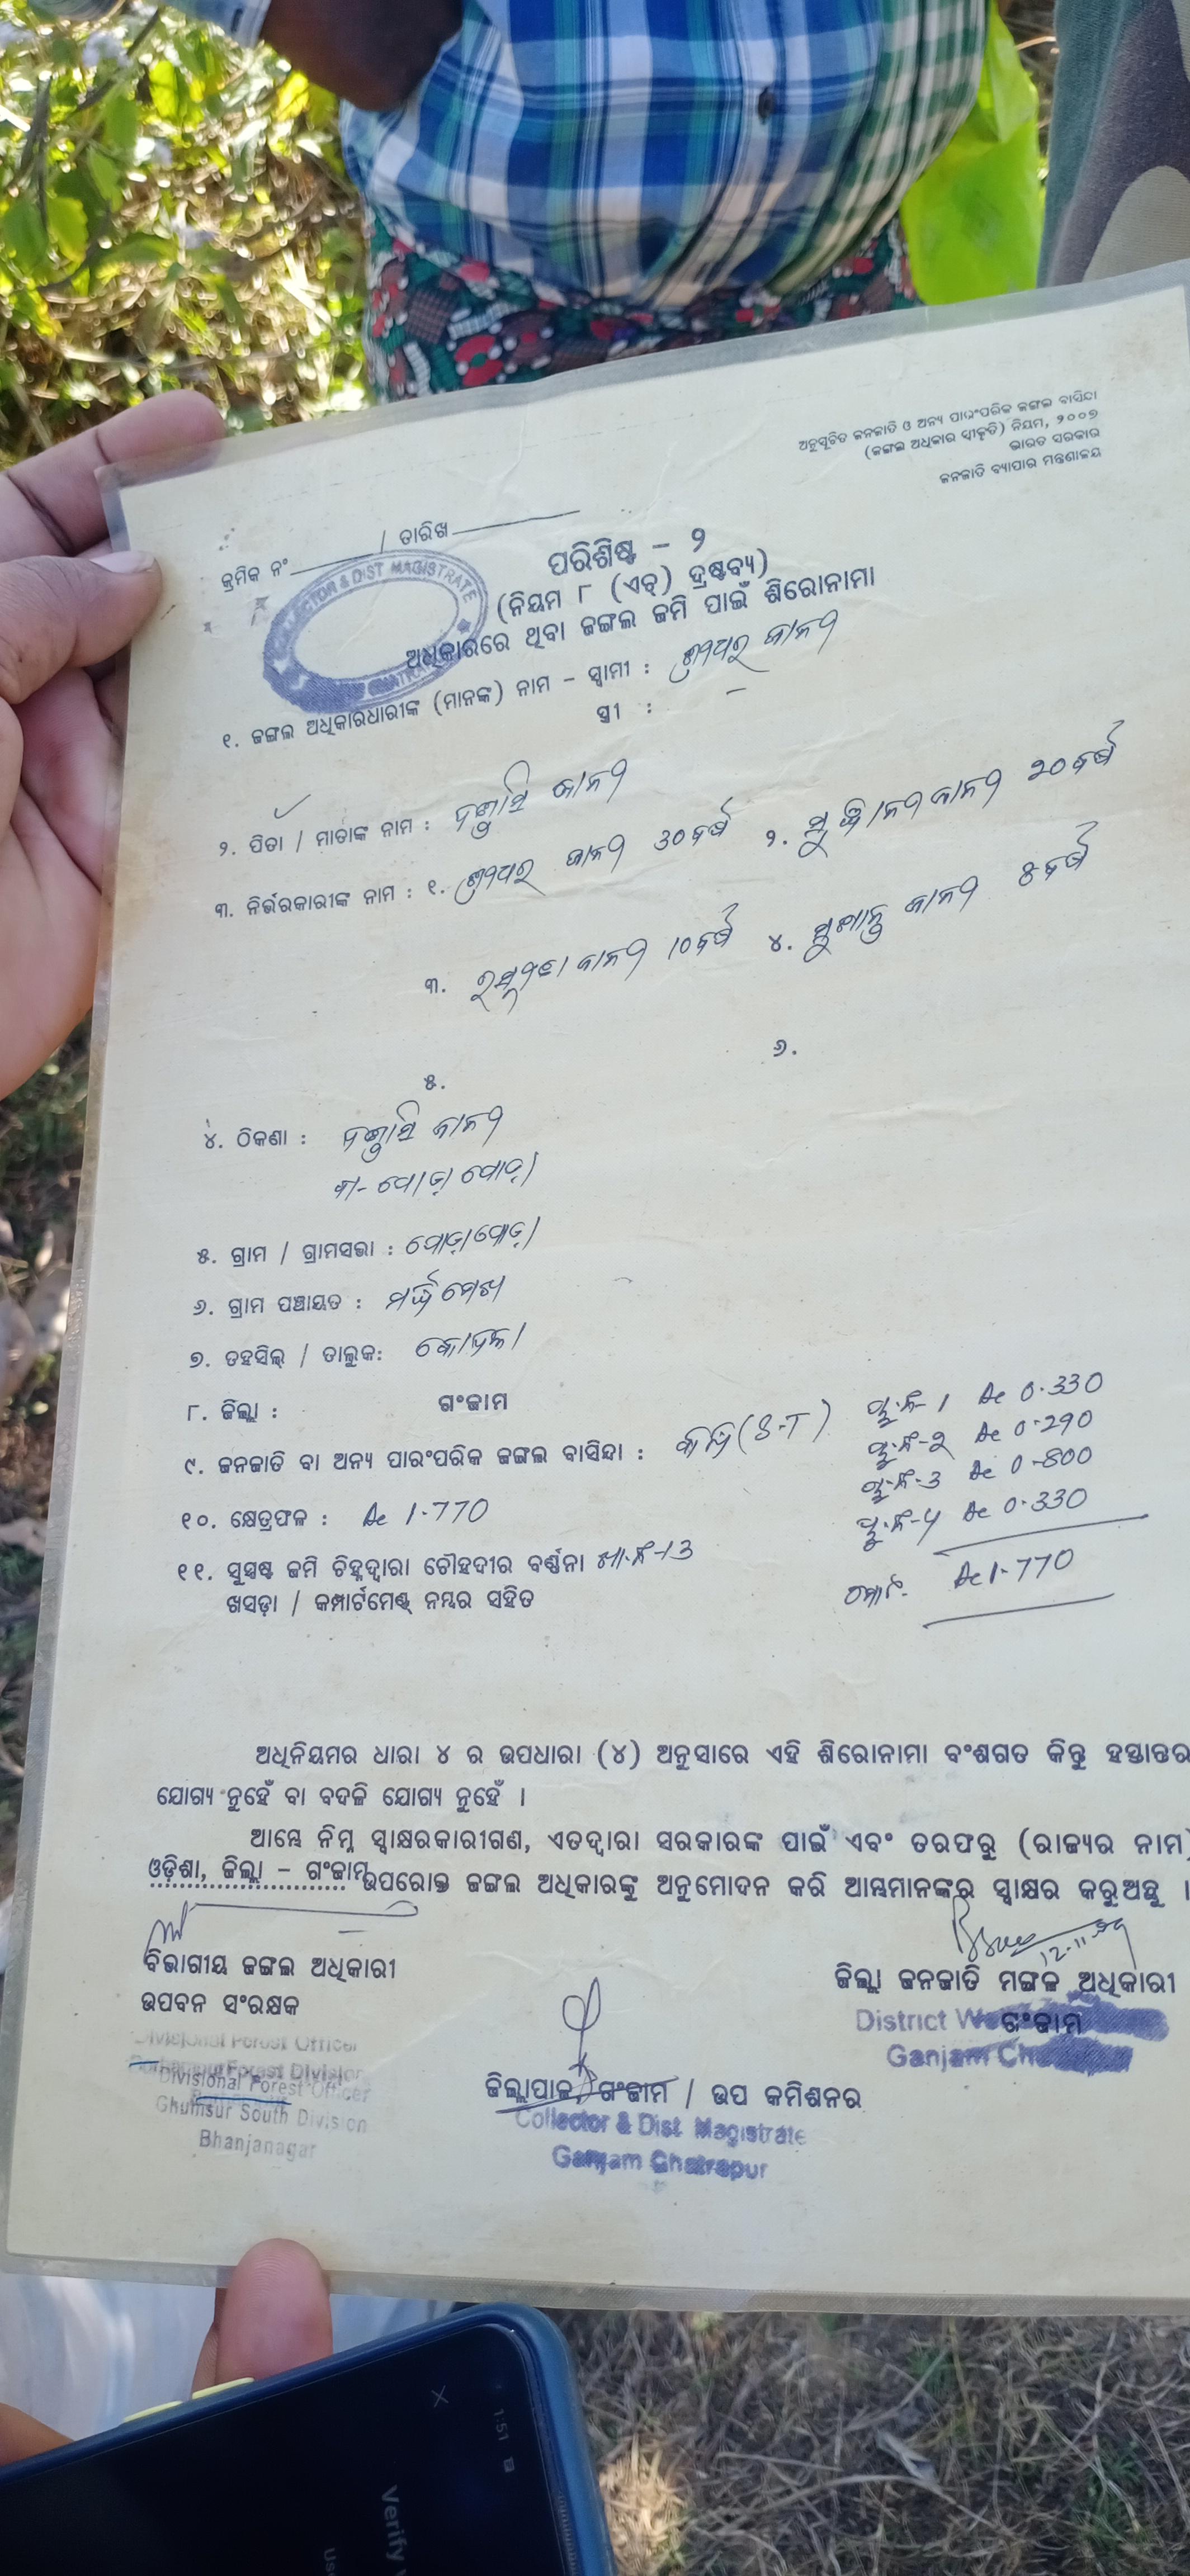 ଅନୁସୂଚିତ ଜନଜାତି ଓ ଅନ୍ୟ ପାରଂପରିକ ଜଙ୍ଗଲ ବାସିନ୍ଦା
(ଜଙ୍ଗଲ ଅଧିକାର ସ୍ୱୀକୃତି) ନିୟମ, ୨୦୦୭
ଭାରତ ସରକାର
ଜନଜାତି ବ୍ୟାପାର ମନ୍ତ୍ରଣାଳୟ
କ୍ରମିକ ନଂ / ତାରିଖ
COLLECTOR & DIST MAGISTRATE
ପରିଶିଷ୍ଟ - ୨
(ନିୟମ ୮ (ଏଚ୍) ଦ୍ରଷ୍ଟବ୍ୟ)
ଅଧିକାରରେ ଥିବା ଜଙ୍ଗଲ ଜମି ପାଇଁ ଶିରୋନାମା
୧. ଜଙ୍ଗଲ ଅଧିକାରଧାରୀଙ୍କ (ମାନଙ୍କ) ନାମ - ସ୍ୱାମୀ : ଶ୍ରୀଧର ଜାନୀ
ସ୍ତ୍ରୀ : -
୨. ପିତା / ମାତାଙ୍କ ନାମ : ଦଣ୍ଡାସି ଜାନୀ
୩. ନିର୍ଭରକାରୀଙ୍କ ନାମ : ୧. ଶ୍ରୀଧର ଜାନୀ 30 ବର୍ଷ ୨. ଜାନୀ ୨0 ବର୍ଷ
୩. ଜାନୀ 10 ବର୍ଷ ୪. ସୁଶାନ୍ତ ଜାନୀ 8 ବର୍ଷ
୫. ୬.
୪. ଠିକଣା : ଦଣ୍ଡାସି ଜାନୀ
୫. ଗ୍ରାମ / ଗ୍ରାମସଭା :
୬. ଗ୍ରାମ ପଞ୍ଚାୟତ :
୭. ତହସିଲ୍ / ତାଲୁକ: କୋଦଳା
୮. ଜିଲ୍ଲା : ଗଂଜାମ
୯. ଜନଜାତି ବା ଅନ୍ୟ ପାରଂପରିକ ଜଙ୍ଗଲ ବାସିନ୍ଦା : (S-T)
ପ୍ଲ.ନଂ-1 Ac 0.330
ପ୍ଲ.ନଂ-2 Ac 0.290
ପ୍ଲ.ନଂ-3 Ac 0-800
ପ୍ଲ.ନଂ-4 Ac 0.330
ମୋଟ. Ac 1.770
୧୦. କ୍ଷେତ୍ରଫଳ : Ac 1.770
୧୧. ସୁସ୍ପଷ୍ଟ ଜମି ଚିହ୍ନଦ୍ୱାରା ଚୌହଦୀର ବର୍ଣ୍ଣନା ଖା.ନଂ-13
ଖସଡ଼ା / କମ୍ପାର୍ଟମେଣ୍ଟ୍ ନମ୍ବର ସହିତ
ଅଧିନିୟମର ଧାରା ୪ ର ଉପଧାରା (୪) ଅନୁସାରେ ଏହି ଶିରୋନାମା ବଂଶଗତ କିନ୍ତୁ ହସ୍ତାନ୍ତର
ଯୋଗ୍ୟ ନୁହେଁ ବା ବଦଳି ଯୋଗ୍ୟ ନୁହେଁ ।
ଆମ୍ଭେ ନିମ୍ନ ସ୍ୱାକ୍ଷରକାରୀଗଣ, ଏତଦ୍ଦ୍ୱାରା ସରକାରଙ୍କ ପାଇଁ ଏବଂ ତରଫରୁ (ରାଜ୍ୟର ନାମ)
ଓଡ଼ିଶା, ଜିଲ୍ଲା - ଗଂଜାମ ଉପରୋକ୍ତ ଜଙ୍ଗଲ ଅଧିକାରଙ୍କୁ ଅନୁମୋଦନ କରି ଆମ୍ଭମାନଙ୍କର ସ୍ୱାକ୍ଷର କରୁଅଛୁ ।
ବିଭାଗୀୟ ଜଙ୍ଗଲ ଅଧିକାରୀ
ଉପବନ ସଂରକ୍ଷକ
Divisional Forest Officer
Divisional Forest Officer
Ghumsur South Division
Bhanjanagar
ଜିଲ୍ଲା ଜନଜାତି ମଙ୍ଗଳ ଅଧିକାରୀ
District ଗଂଜାମ
Ganjam
ଜିଲ୍ଲାପାଳ, ଗଂଜାମ / ଉପ କମିଶନର
Collector & Dist. Magistrate
Ganjam Chatrapur
1:51
Verify